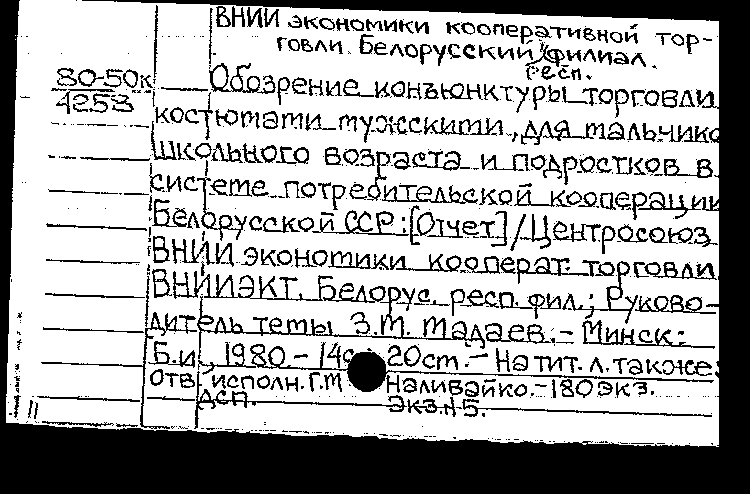 ВНИИ экономики кооперативной тор-
говли. Белорусский филиал.
респ.
80-50к
4253
Обозрение конъюнктуры торговли
костюмами мужскими, для мальчико
школьного возраста и подростков в
системе потребительской кооперации
Белорусской ССР: [Отчет] / Центросоюз
ВНИИ экономики кооперат. торговли
ВНИИЭКТ. Белорус. респ. фил.; Руково-
дитель темы З.М. Мадаев. - Минск:
Б.и., 1980. - 14с 20см. - На тит. л. также:
отв. исполн. Г.М Наливайко. - 180 экз.
ДСП. Экз. N 5.
11